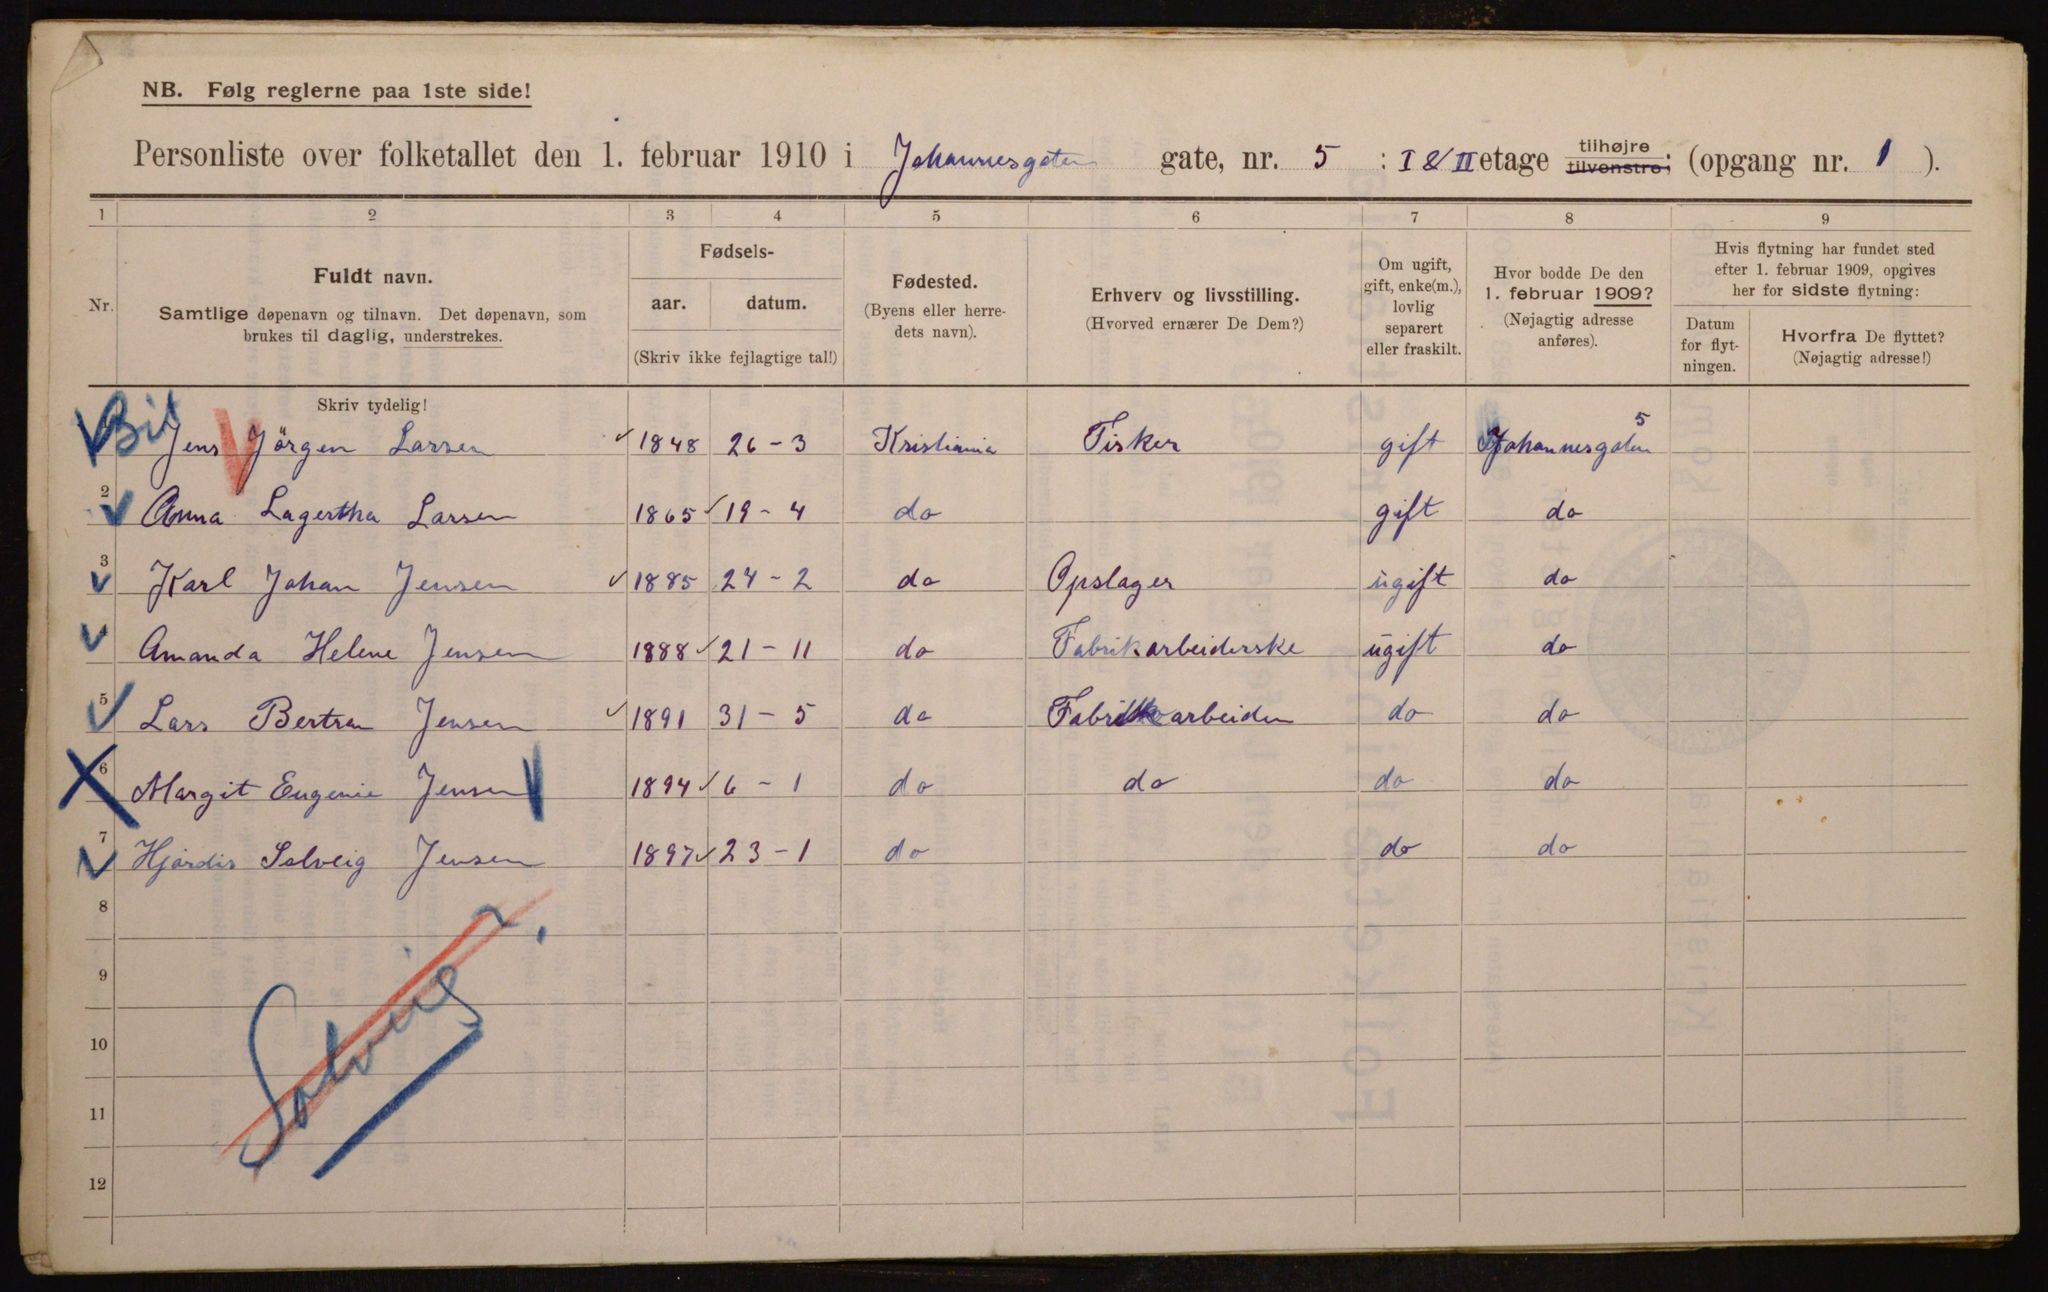 NB. Følg reglerne paa 1ste side!
Personliste over folketallet den 1. februar 1910 i Johannesgaten gate, nr. 5 : I & II etage tilhøjre tilvenstre; (opgang nr. 1 ).
1 2 3 4 5 6 7 8 9
Nr.
Fuldt navn.
Samtlige døpenavn og tilnavn. Det døpenavn, som
brukes til daglig, understrekes.
Fødsels-
aar. datum.
(Skriv ikke fejlagtige tal!)
Fødested.
(Byens eller herre-
dets navn).
Erhverv og livsstilling.
(Hvorved ernærer De Dem?)
Om ugift,
gift, enke(m.),
lovlig
separert
eller fraskilt.
Hvor bodde De den
1. februar 1909?
(Nøjagtig adresse
anføres).
Hvis flytning har fundet sted
efter 1. februar 1909, opgives
her for sidste flytning:
Datum
for flyt-
ningen.
Hvorfra De flyttet?
(Nøjagtig adresse!)
Skriv tydelig!
Jens Jörgen Larsen 1848 26-3 Kristiania Fisker gift Johannesgaten 5
2 Anna Lagertha Larsen 1865 19-4 do gift do
3 Karl Johan Jensen 1885 24-2 do Opslager ugift do
4 Amanda Helene Jensen 1888 21-11 do Fabrikarbeiderske ugift do
5 Lars Bertran Jensen 1891 31-5 do Fabrikarbeider do do
6 Margit Eugenie Jensen 1894 6-1 do do do do
7 Hjördis Solveig Jensen 1897 23-1 do do do
8
9
10
11
12